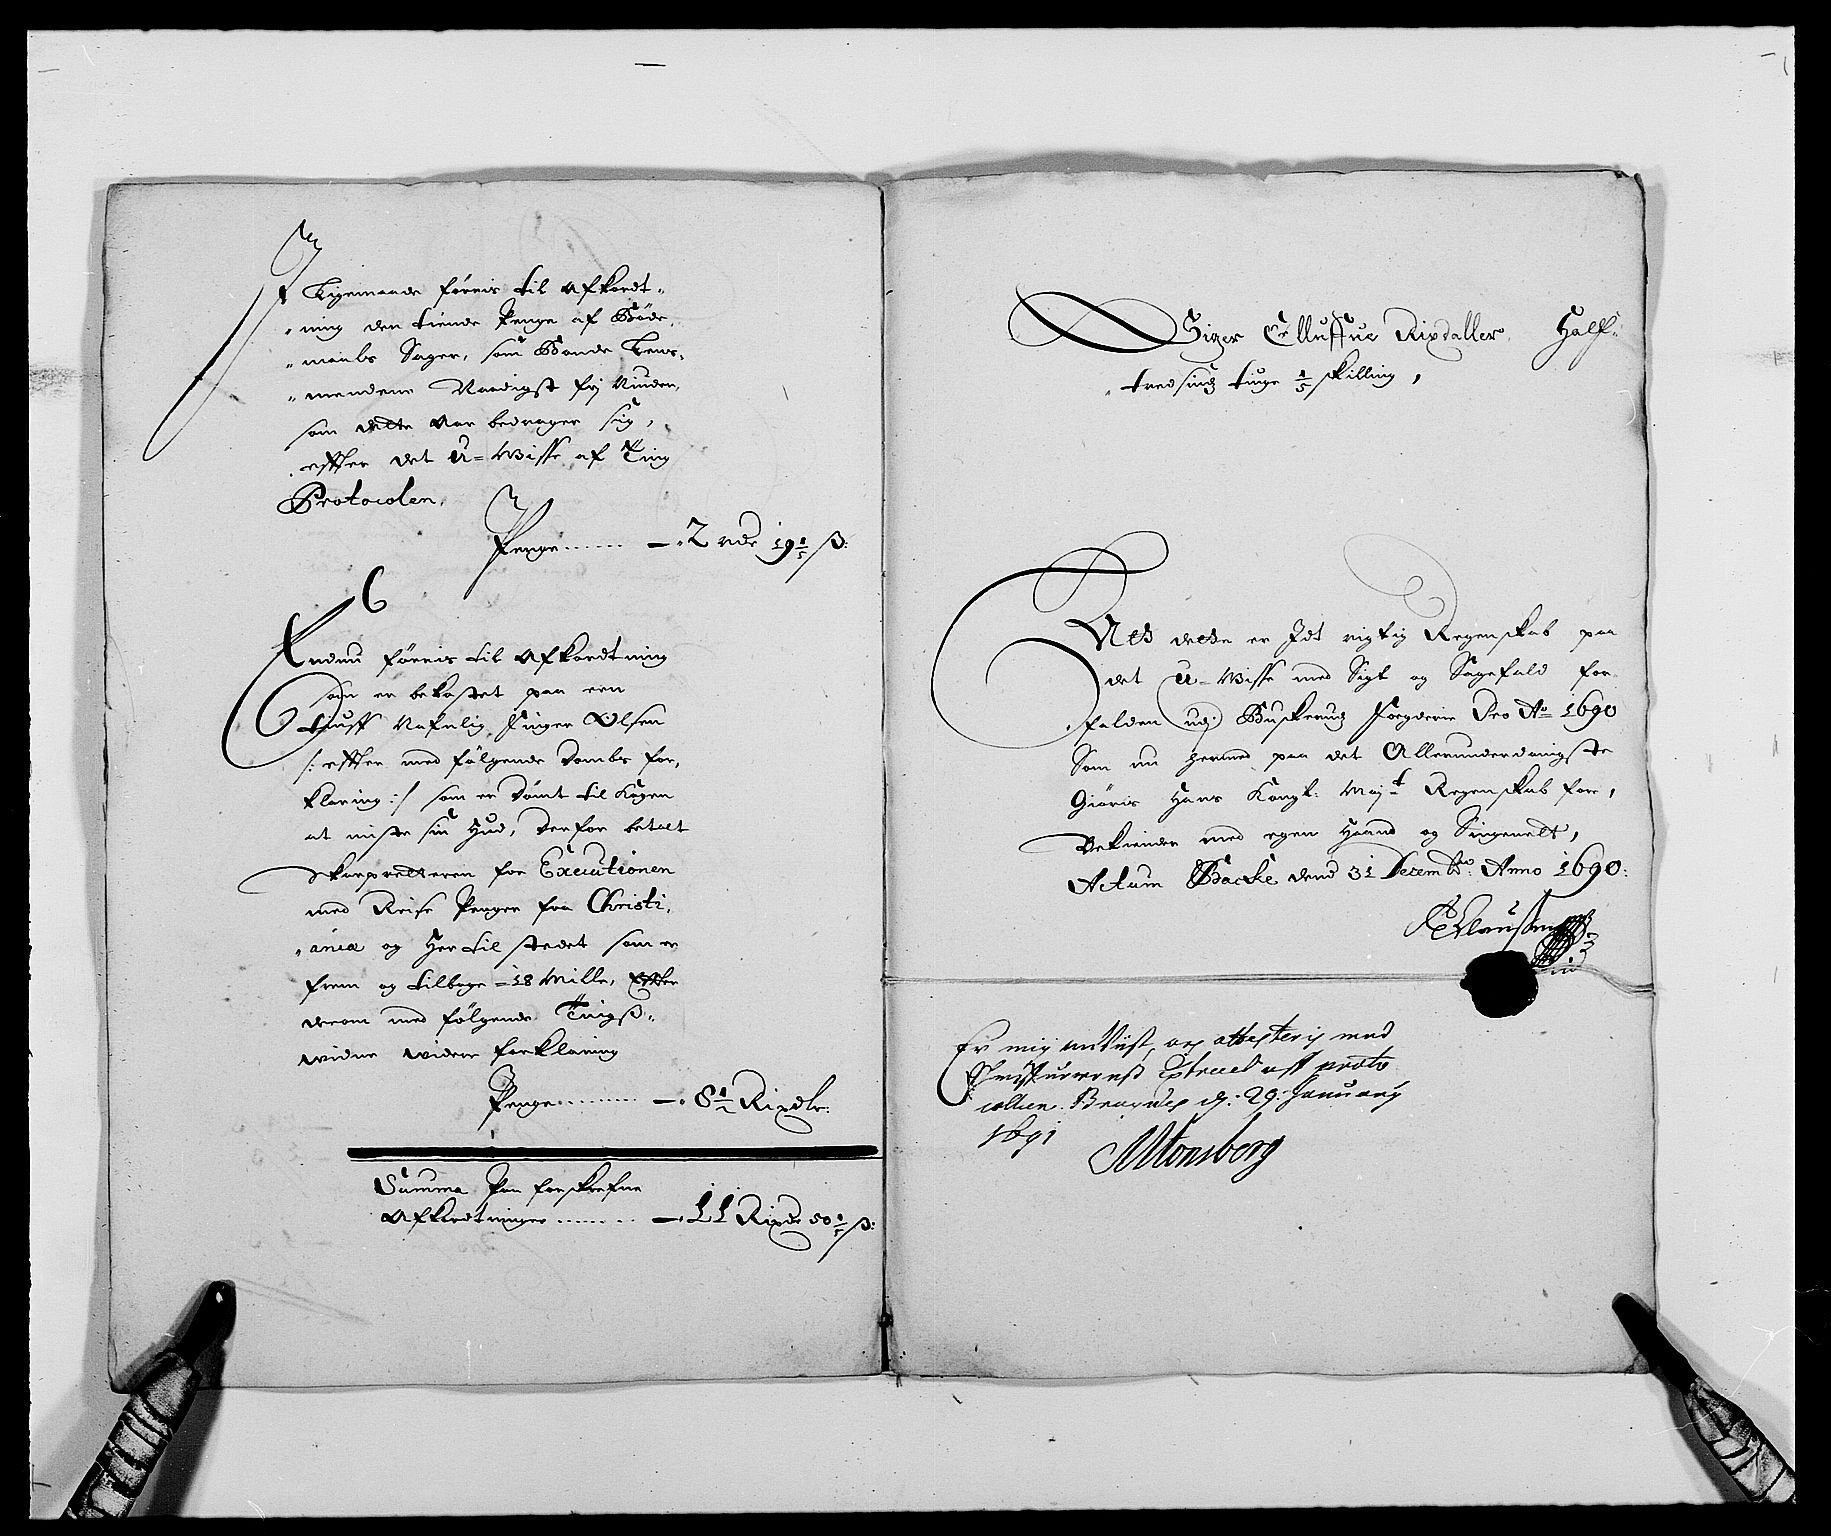 Ligemaade føres til Afkordt„
„ning den tiende Penge af Bøde„
„mands Sager, som Bonde Lens„
„mendene Naadigst
som dette Aar bedrager sig,
effter det U-Wisse af Ting
Protocolen,
Penge ...... —. 2 rdr 19 1/5 ß:
6
Endnu føris til Afkordtning
som er bekostet paa een
Tiuff Nafnlig Finger Olsen
/: effter med følgende Dombs for„
klaring :/ som er dømt til Kagen
at miste sin Hud, derfor betalt
Skarpretteren for Executionen
med Reise Penger fra Christi„
„ania og Her til stedet som er
frem og tilbage - 18 Mille, Effter
derom med følgende Tingß„
widne widere forklaring
Penge ......... —. 8 1/2 Rixdlr:
Summa Paa forskrefne
Afkordtninger ........ —. 11 Rixdr 50 1/5 ß:
Siger Elluffue Rixdaller, Half„
„tredsindz tiuge 1/5 skilling,
At dette er Idt rigtig Regenskab paa
det U-Wisse med Sigt og Sagefald for„
falden udj Buskerudz Fogderie Pro Ao 1690
Som nu hermed paa det Allerunderdanigste
Giøris Hans Kongl: Mayt Regenskab for,
Bekiender med egen Haand og Signet,
Actum Backe dend 31 Decembr: Anno 1690:
Clausen
Er mig anviist, og attesteris med
Extract aff proto
collen. Bragnes d: 29: January
1691
MTonsberg